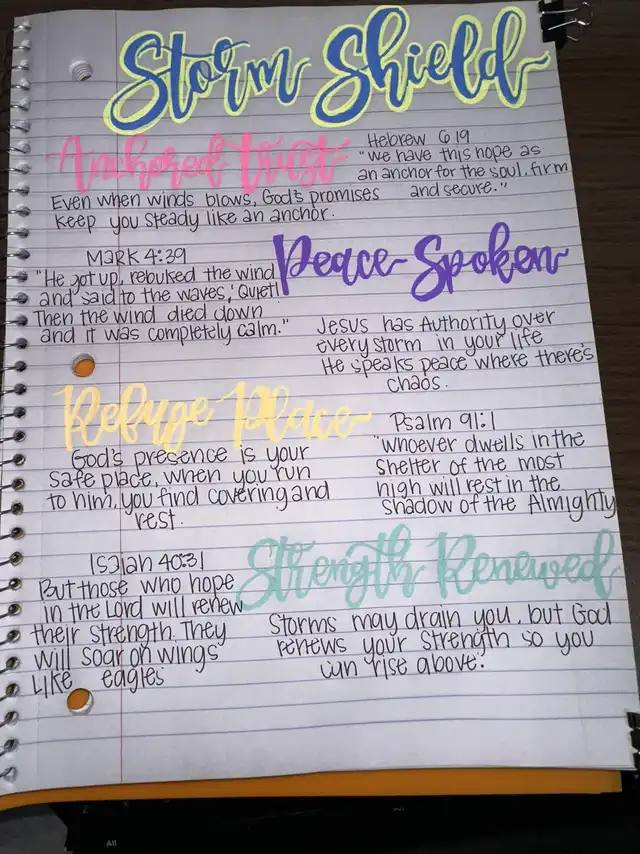 Storm Shield
Anchored trust
Hebrew 6 19
"We have this hope as
an anchor for the soul, firm
and secure."
Even when winds blows, God's promises
keep you steady like an anchor.
Peace Spoken
Mark 4:39
"He got up, rebuked the wind
and said to the waves, 'Quiet!
Then the wind died down
and it was completely calm."
Jesus has Authority over
every storm in your life
He speaks peace where there's
chaos.
Refuge Place
God's presence is your
safe place, when you run
to him, you find covering and
rest.
Psalm 91:1
"Whoever dwells in the
shelter of the most
high will rest in the
shadow of the Almighty
Strength Renewed
Isaiah 40:31
But those who hope
in the Lord will renew
their strength. They
will soar on wings
like eagles
Storms may drain you, but God
renews your strength so you
can rise above.
All